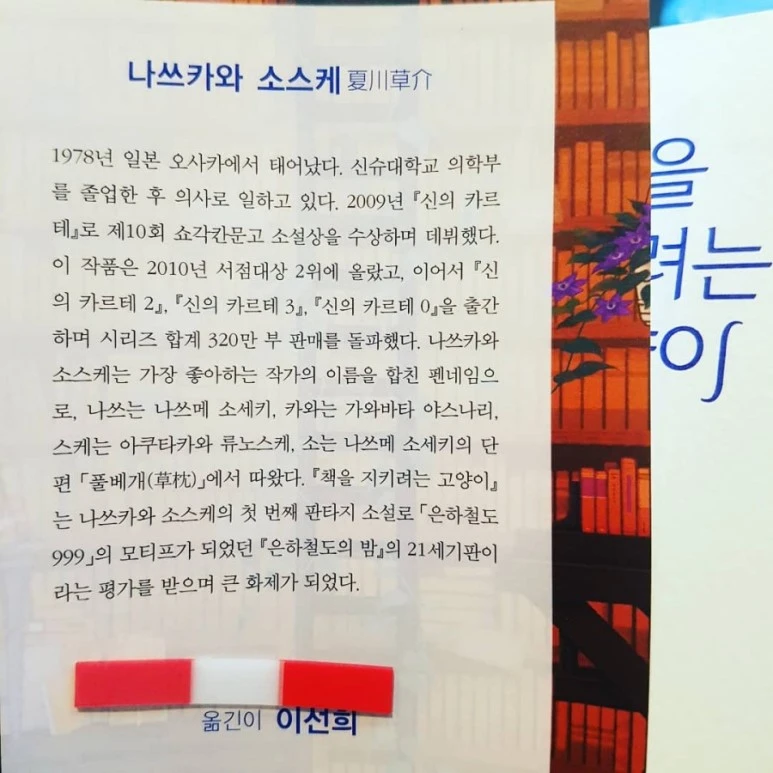 나쓰카와 소스케 夏川草介
1978년 일본 오사카에서 태어났다. 신슈대학교 의학부
를 졸업한 후 의사로 일하고 있다. 2009년 『신의 카르
테』로 제10회 쇼각칸문고 소설상을 수상하며 데뷔했다.
이 작품은 2010년 서점대상 2위에 올랐고, 이어서 『신
의 카르테 2』, 『신의 카르테 3』, 『신의 카르테 0』을 출간
하며 시리즈 합계 320만 부 판매를 돌파했다. 나쓰카와
소스케는 가장 좋아하는 작가의 이름을 합친 펜네임으
로, 나쓰는 나쓰메 소세키, 카와는 가와바타 야스나리,
스케는 아쿠타카와 류노스케, 소는 나쓰메 소세키의 단
편 「풀베개(草枕)」에서 따왔다. 『책을 지키려는 고양이』
는 나쓰카와 소스케의 첫 번째 판타지 소설로 「은하철도
999」의 모티프가 되었던 『은하철도의 밤』의 21세기판이
라는 평가를 받으며 큰 화제가 되었다.
옮긴이 이선희
을
려는
이